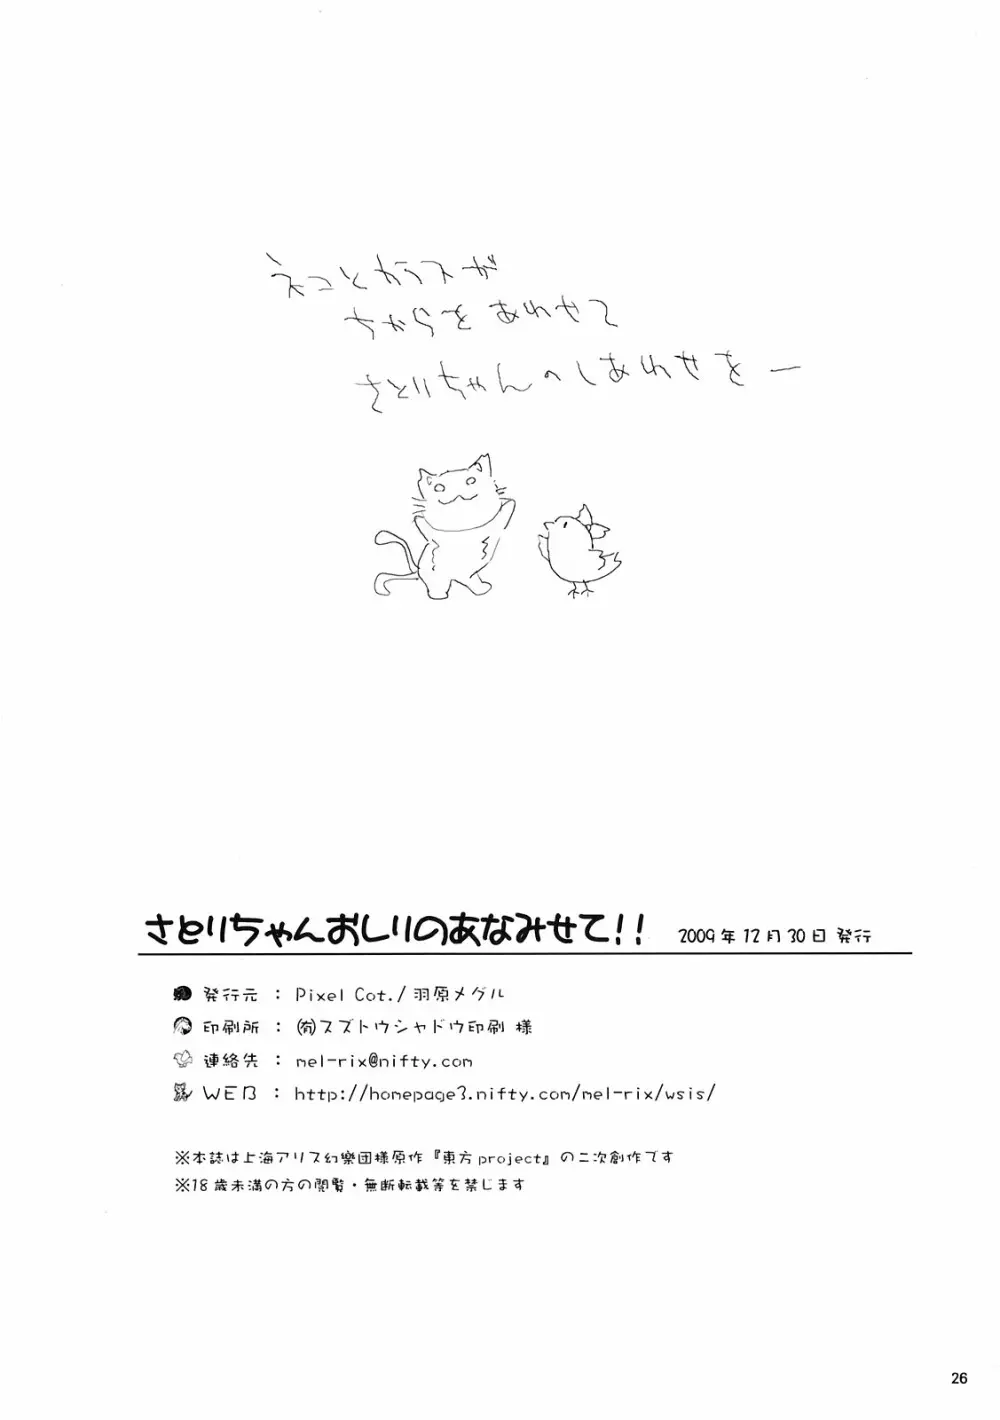 ネコとカラスが
ちからをあわせて
さとりちゃんのしあわせをー
さとりちゃんおしりのあなみせて!! 2009年12月30日 発行
発行元 : Pixel Cot./羽原メグル
印刷所 : ㈲スズトウシャドウ印刷 様
連絡先 : mel-rix@nifty.com
WEB : http://homepage3.nifty.com/mel-rix/wsis/
※本誌は上海アリス幻樂団様原作『東方project』の二次創作です
※18歳未満の方の閲覧・無断転載等を禁じます
26